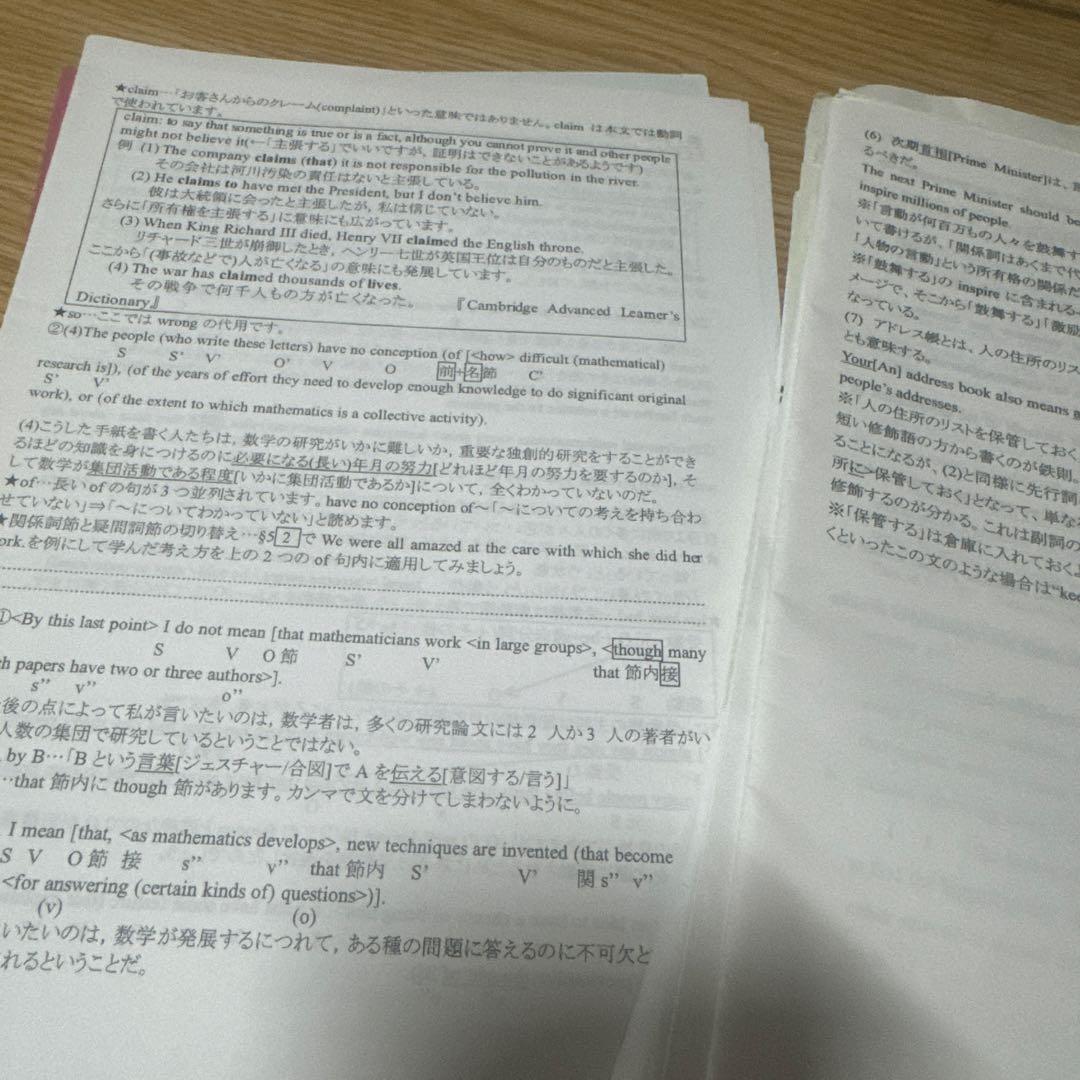 ★claim…「お客さんからのクレーム(complaint)」といった意味ではありません。claim は本文では動詞
で使われています。
claim: to say that something is true or is a fact, although you cannot prove it and other people
might not believe it(←「主張する」でいいですが，証明はできないことがあるようです)
例 (1) The company claims (that) it is not responsible for the pollution in the river.
その会社は河川汚染の責任はないと主張している。
(2) He claims to have met the President, but I don't believe him.
彼は大統領に会ったと主張したが，私は信じていない。
さらに「所有権を主張する」に意味にも広がっています。
(3) When King Richard III died, Henry VII claimed the English throne.
リチャード三世が崩御したとき，ヘンリー七世が英国王位は自分のものだと主張した。
ここから「(事故などで)人が亡くなる」の意味にも発展しています。
(4) The war has claimed thousands of lives.
その戦争で何千人もの方が亡くなった。 『Cambridge Advanced Learner's
Dictionary』
★so…ここでは wrong の代用です。
②(4)The people (who write these letters) have no conception (of [<how> difficult (mathematical)
S S' V' O' V O 前+名節 C'
research is]), (of the years of effort they need to develop enough knowledge to do significant original
S' V'
work), or (of the extent to which mathematics is a collective activity).
(4)こうした手紙を書く人たちは，数学の研究がいかに難しいか，重要な独創的研究をすることができ
るほどの知識を身につけるのに必要になる(長い)年月の努力[どれほど年月の努力を要するのか]，そ
して数学が集団活動である程度[いかに集団活動であるか]について，全くわかっていないのだ。
★of…長い of の句が 3 つ並列されています。have no conception of～「～についての考えを持ち合わ
せていない」⇒「～についてわかっていない」と読めます。
★関係詞節と疑問詞節の切り替え…§5 2 で We were all amazed at the care with which she did her
ork.を例にして学んだ考え方を上の 2 つの of 句内に適用してみましょう。
①<By this last point> I do not mean [that mathematicians work <in large groups>, <though many
S V O 節 S' V' that 節内接
h papers have two or three authors>].
s'' v'' o''
後の点によって私が言いたいのは，数学者は，多くの研究論文には 2 人か 3 人の著者がい
人数の集団で研究しているということではない。
by B…「B という言葉[ジェスチャー/合図]で A を伝える[意図する/言う]」
…that 節内に though 節があります。カンマで文を分けてしまわないように。
I mean [that, <as mathematics develops>, new techniques are invented (that become
S V O 節 接 s'' v'' that 節内 S' V' 関 s'' v''
<for answering (certain kinds of) questions>)].
(v) (o)
いたいのは，数学が発展するにつれて，ある種の問題に答えるのに不可欠と
れるということだ。
(6) 次期首相[Prime Minister]は，言
るべきだ。
The next Prime Minister should be
inspire millions of people.
※「言動が何百万もの人々を鼓舞す
いて書けるが，「関係詞はあくまで代
「人物の言動」という所有格の関係だ
※「鼓舞する」の inspire に含まれる
メージで，そこから「鼓舞する」「激励
なっている。
(7) アドレス帳とは，人の住所のリス
とも意味する。
Your[An] address book also means
people's addresses.
※「人の住所のリストを保管しておく
短い修飾語の方から書くのが鉄則。
ることになるが，(2)と同様に先行詞
所に>保管しておく」となって，単な
修飾するのが分かる。これは副詞の
※「保管する」は倉庫に入れておく
くといったこの文のような場合は"kee